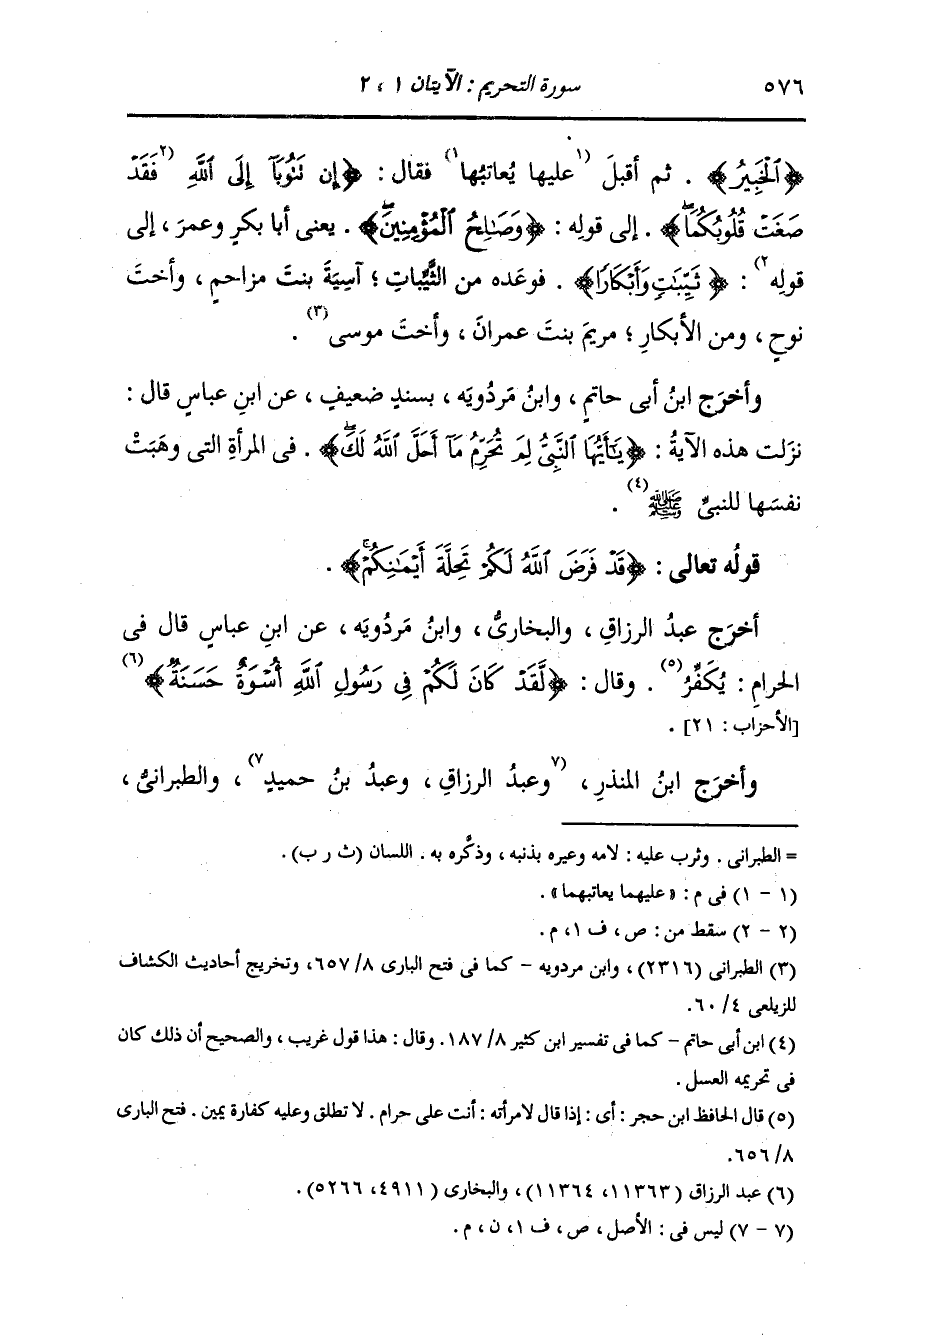 ٥٧٦ سورة التحريم : الآيتان ١ ، ٢
﴿ٱلْخَبِيرُ﴾ . ثم أقبلَ (١عليها يُعاتبُها١) فقال : ﴿إِن تَتُوبَآ إِلَى ٱللَّهِ (٢فَقَدْ
صَغَتْ قُلُوبُكُمَاۖ﴾ . إلى قولِه : ﴿وَصَٰلِحُ ٱلْمُؤْمِنِينَۖ﴾ . يعنى أبا بكرٍ وعمرَ ، إلى
قولِه٢) : ﴿ثَيِّبَٰتٍ وَأَبْكَارًا﴾ . فوعَده من الثَّيِّباتِ ؛ آسيَةَ بنتَ مزاحمٍ ، وأختَ
نوحٍ ، ومن الأبكارِ ؛ مريمَ بنتَ عمرانَ ، وأختَ موسى(٣) .
وأخرَج ابنُ أبى حاتمٍ ، وابنُ مَردُويَه ، بسندٍ ضعيفٍ ، عن ابنِ عباسٍ قال :
نزَلت هذه الآيةُ : ﴿يَٰٓأَيُّهَا ٱلنَّبِيُّ لِمَ تُحَرِّمُ مَآ أَحَلَّ ٱللَّهُ لَكَۖ﴾ . فى المرأةِ التى وهَبَتْ
نفسَها للنبىِّ ﷺ(٤) .
قولُه تعالى : ﴿قَدْ فَرَضَ ٱللَّهُ لَكُمْ تَحِلَّةَ أَيْمَٰنِكُمْۚ﴾ .
أخرَج عبدُ الرزاقِ ، والبخارىُّ ، وابنُ مَردُويَه ، عن ابنِ عباسٍ قال فى
الحرامِ : يُكَفِّرُ(٥) . وقال : ﴿لَّقَدْ كَانَ لَكُمْ فِى رَسُولِ ٱللَّهِ أُسْوَةٌ حَسَنَةٌ﴾(٦)
[الأحزاب : ٢١] .
وأخرَج ابنُ المنذرِ ، (٧وعبدُ الرزاقِ ، وعبدُ بنُ حميدٍ٧) ، والطبرانىُّ ،
= الطبرانى . وثرب عليه : لامه وعيره بذنبه ، وذكَّره به . اللسان (ث ر ب) .
(١ - ١) فى م : «عليهما يعاتبهما» .
(٢ - ٢) سقط من : ص ، ف ١، م .
(٣) الطبرانى (٢٣١٦) ، وابن مردويه - كما فى فتح البارى ٨/ ٦٥٧، وتخريج أحاديث الكشاف
للزيلعى ٤/ ٦٠.
(٤) ابن أبى حاتم - كما فى تفسير ابن كثير ٨/ ١٨٧. وقال : هذا قول غريب ، والصحيح أن ذلك كان
فى تحريمه العسل .
(٥) قال الحافظ ابن حجر : أى : إذا قال لامرأته : أنت على حرام . لا تطلق وعليه كفارة يمين . فتح البارى
٨/ ٦٥٦.
(٦) عبد الرزاق (١١٣٦٣، ١١٣٦٤) ، والبخارى (٤٩١١، ٥٢٦٦) .
(٧ - ٧) ليس فى : الأصل ، ص ، ف ١، ن ، م .